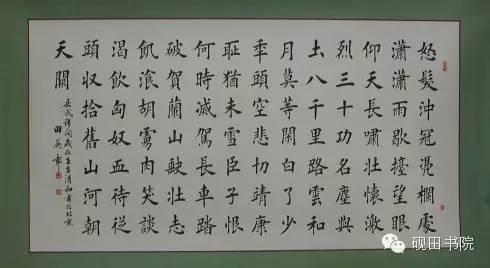 怒髮沖冠凭欄處
瀟瀟雨歇擡望眼
仰天長嘯壯懷激
烈三十功名塵與
土八千里路雲和
月莫等閑白了少
秊頭空悲切靖康
恥猶未雪臣子恨
何時滅駕長車踏
破賀蘭山缺壯志
飢湌胡虜肉笑談
渴飲匈奴血待從
頭収拾舊山河朝
天闕
岳武穆詞歲在壬辰清和書於北京
田英章
砚田书院